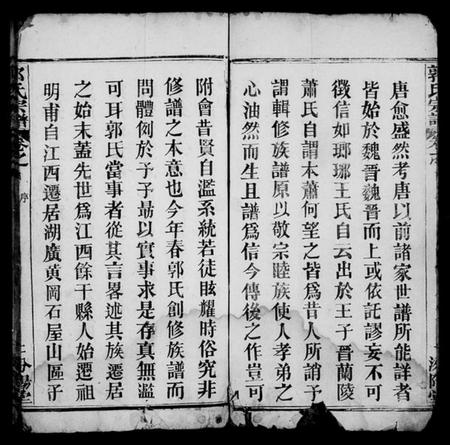 唐愈盛然考唐以前諸家世譜所能詳者
皆始於魏晉魏晉而上或依託謬妄不可
徵信如瑯琊王氏自云出於王子晉蘭陵
蕭氏自謂本蕭何望之皆爲昔人所誚予
謂輯修族譜原以敬宗睦族使人孝弟之
心油然而生且譜爲信今傳後之作豈可
附會昔賢自濫系統若徒眩耀時俗究非
修譜之本意也今年春郭氏創修族譜而
問體例於予予勗以實事求是存真無濫
可耳郭氏當事者從其言畧述其族遷居
之始末蓋先世爲江西餘干縣人始遷祖
明甫自江西遷居湖廣黄岡石屋山區子
郭氏宗譜
序